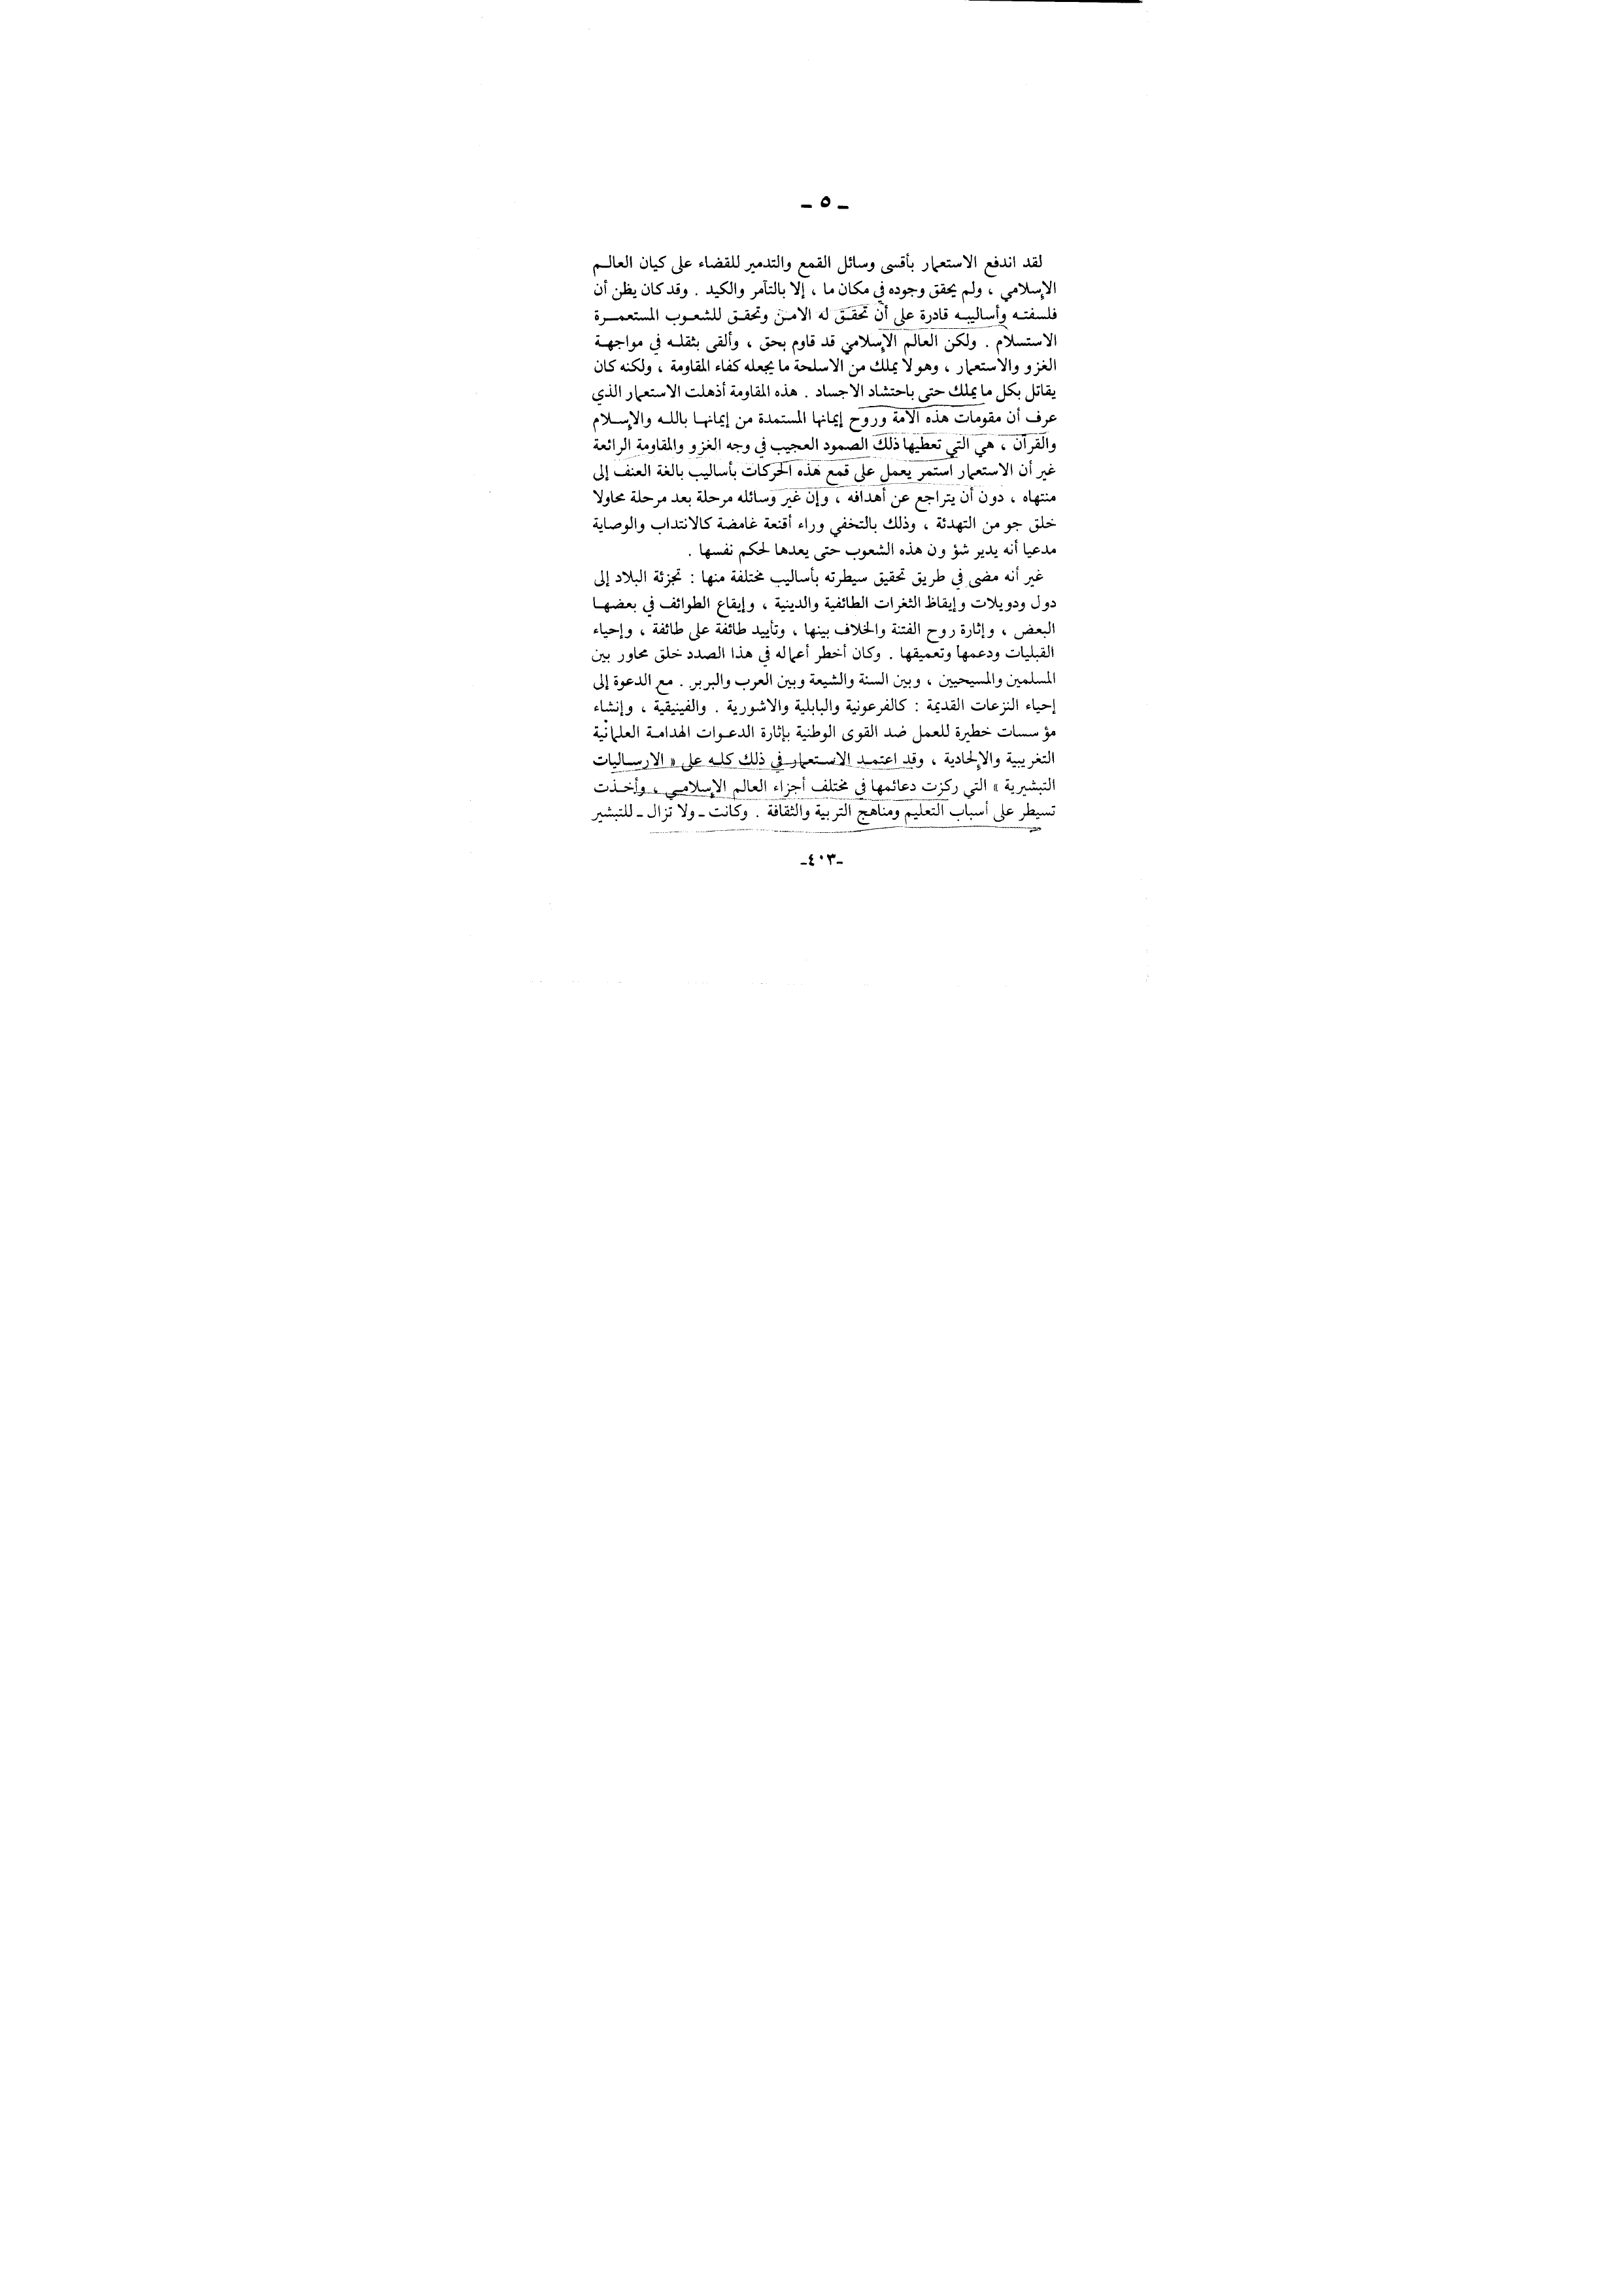 ـ ٥ ـ
لقد اندفع الاستعمار بأقسى وسائل القمع والتدمير للقضاء على كيان العالـم
الإسلامي ، ولم يحقق وجوده في مكان ما ، إلا بالتآمر والكيد . وقد كان يظن أن
فلسفتـه وأساليبـه قادرة على أن تحقـق له الامـن وتحقـق للشعـوب المستعمـرة
الاستسلام . ولكن العالم الإسلامي قد قاوم بحق ، وألقى بثقلـه في مواجهـة
الغزو والاستعمار ، وهو لا يملك من الاسلحة ما يجعله كفاء المقاومة ، ولكنه كان
يقاتل بكل ما يملك حتى باحتشاد الاجساد . هذه المقاومة أذهلت الاستعمار الذي
عرف أن مقومات هذه الامة وروح إيمانها المستمدة من إيمانهـا باللـه والإسـلام
والقرآن ، هي التي تعطيها ذلك الصمود العجيب في وجه الغزو والمقاومة الرائعة
غير أن الاستعمار استمر يعمل على قمع هذه الحركات بأساليب بالغة العنف إلى
منتهاه ، دون أن يتراجع عن أهدافه ، وإن غير وسائله مرحلة بعد مرحلة محاولا
خلق جو من التهدئة ، وذلك بالتخفي وراء أقنعة غامضة كالانتداب والوصاية
مدعيا أنه يدير شؤون هذه الشعوب حتى يعدها لحكم نفسها .
غير أنه مضى في طريق تحقيق سيطرته بأساليب مختلفة منها : تجزئة البلاد إلى
دول ودويلات وإيقاظ الثغرات الطائفية والدينية ، وإيقاع الطوائف في بعضهـا
البعض ، وإثارة روح الفتنة والخلاف بينها ، وتأييد طائفة على طائفة ، وإحياء
القبليات ودعمها وتعميقها . وكان أخطر أعماله في هذا الصدد خلق محاور بين
المسلمين والمسيحيين ، وبين السنة والشيعة وبين العرب والبربر . مع الدعوة إلى
إحياء النزعات القديمة : كالفرعونية والبابلية والاشورية . والفينيقية ، وإنشاء
مؤسسات خطيرة للعمل ضد القوى الوطنية بإثارة الدعـوات الهدامـة العلمانية
التغريبية والإلحادية ، وقد اعتمـد الاستعمار في ذلك كلـه على « الارسـاليات
التبشيرية » التي ركزت دعائمها في مختلف أجزاء العالم الإسلامـي ، وأخـذت
تسيطر على أسباب التعليم ومناهج التربية والثقافة . وكانت ـ ولا تزال ـ للتبشير
ـ٤٠٣ـ